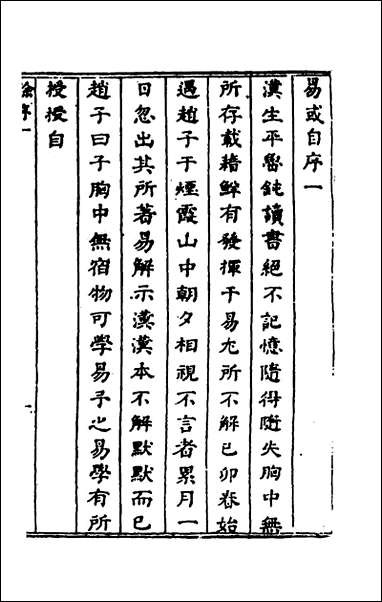 易或自序一
漢生平魯鈍讀書絕不記憶隨得隨失胸中無
所存載籍鮮有發揮于易尢所不解已卯春始
遇趙子于煙霞山中朝夕相視不言者累月一
日忽出其所著易解示漢漢本不解默默而已
趙子曰子胸中無宿物可學易予之易學有所
授授自
徐序一